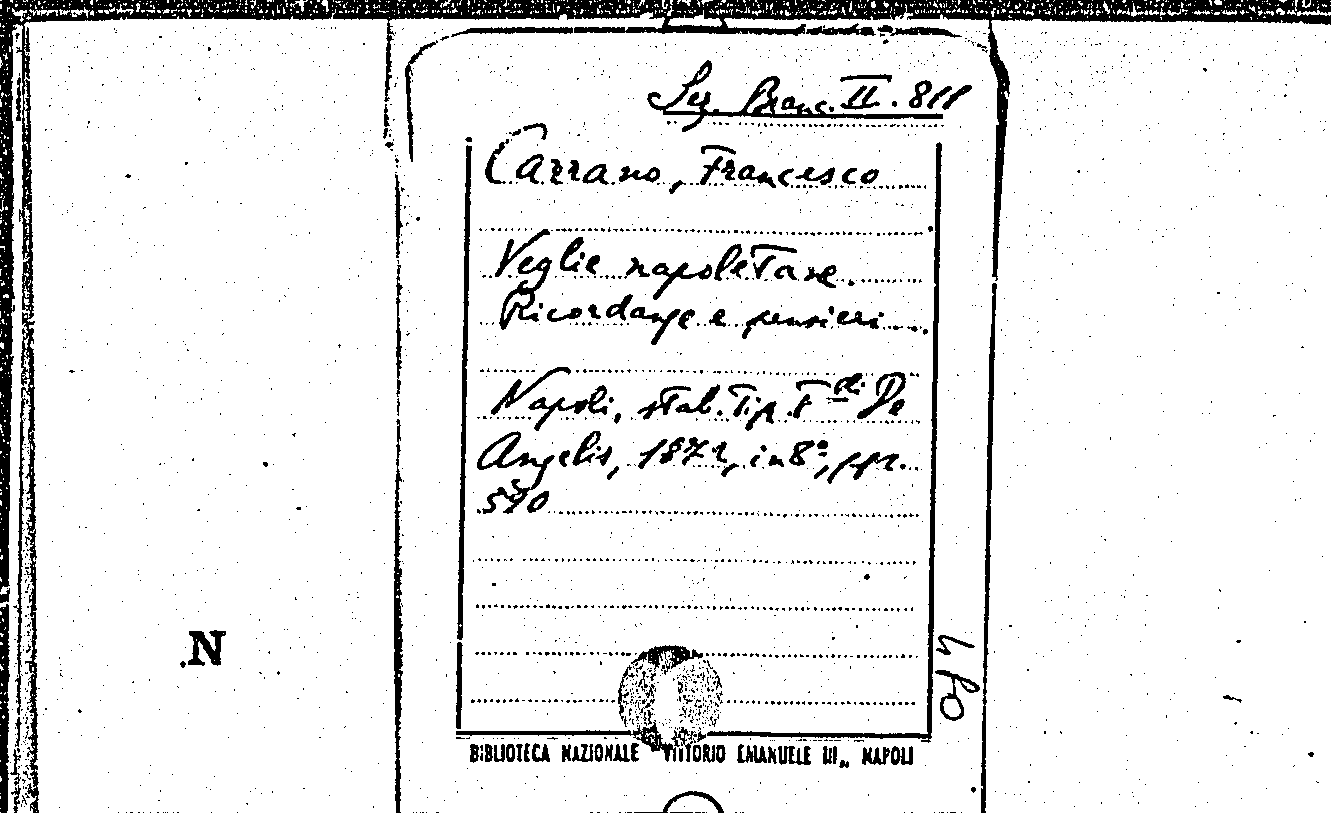 Sez. Branc. II. 811
Carrano, Francesco
Veglie napoletane.
Ricordanze e pensieri...
Napoli, stab. Tip. F.di De
Angelis, 1872, in 8°, pp.
510
N
BIBLIOTECA NAZIONALE "VITTORIO EMANUELE III„ NAPOLI